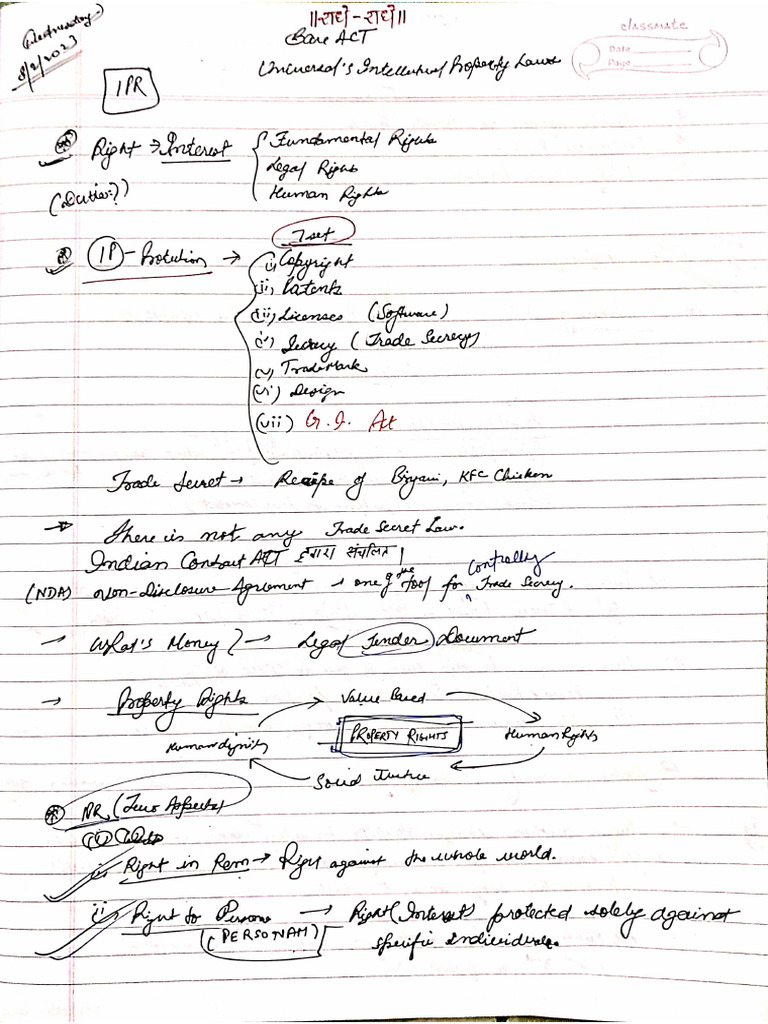 Wednesday
8/2/2023
॥राधे-राधे॥
Bare ACT
Universal's Intellectual Property Laws
classmate
Date
Page
IPR
Right → Interest { Fundamental Rights
Legal Rights
Human Rights
(Duties?)
7 set
IP - Protection →
(i) Copyright
(ii) Patents
(iii) Licenses (Software)
(iv) Secrecy (Trade Secrecy)
(v) TradeMark
(vi) Design
(vii) G.I. Act
Trade Secret → Recipe of Biryani, KFC Chicken
→ There is not any Trade Secret Law.
Indian Contract ACT द्वारा संचलित।
controlly
(NDA) Non-Disclosure Agreement → one of the tool for Trade Secrecy.
→ What's Money? → Legal Tender Document
→ Property Rights
Value Based
Human dignity
PROPERTY RIGHTS
Human Rights
Social Justice
(Two Aspects)
(i) Right in Rem → Right against the whole world.
(ii) Right to Persona → Right (Interest) protected solely against
(PERSONAM)
specific individuals.